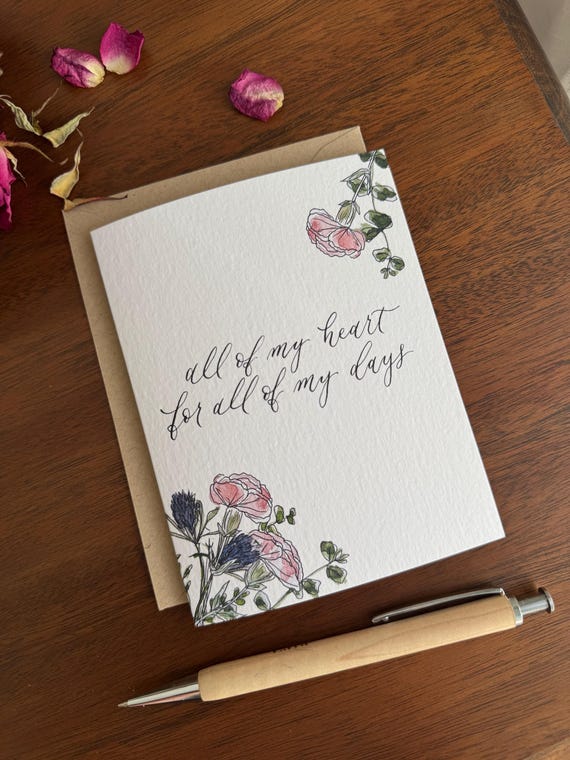 all of my heart
for all of my days